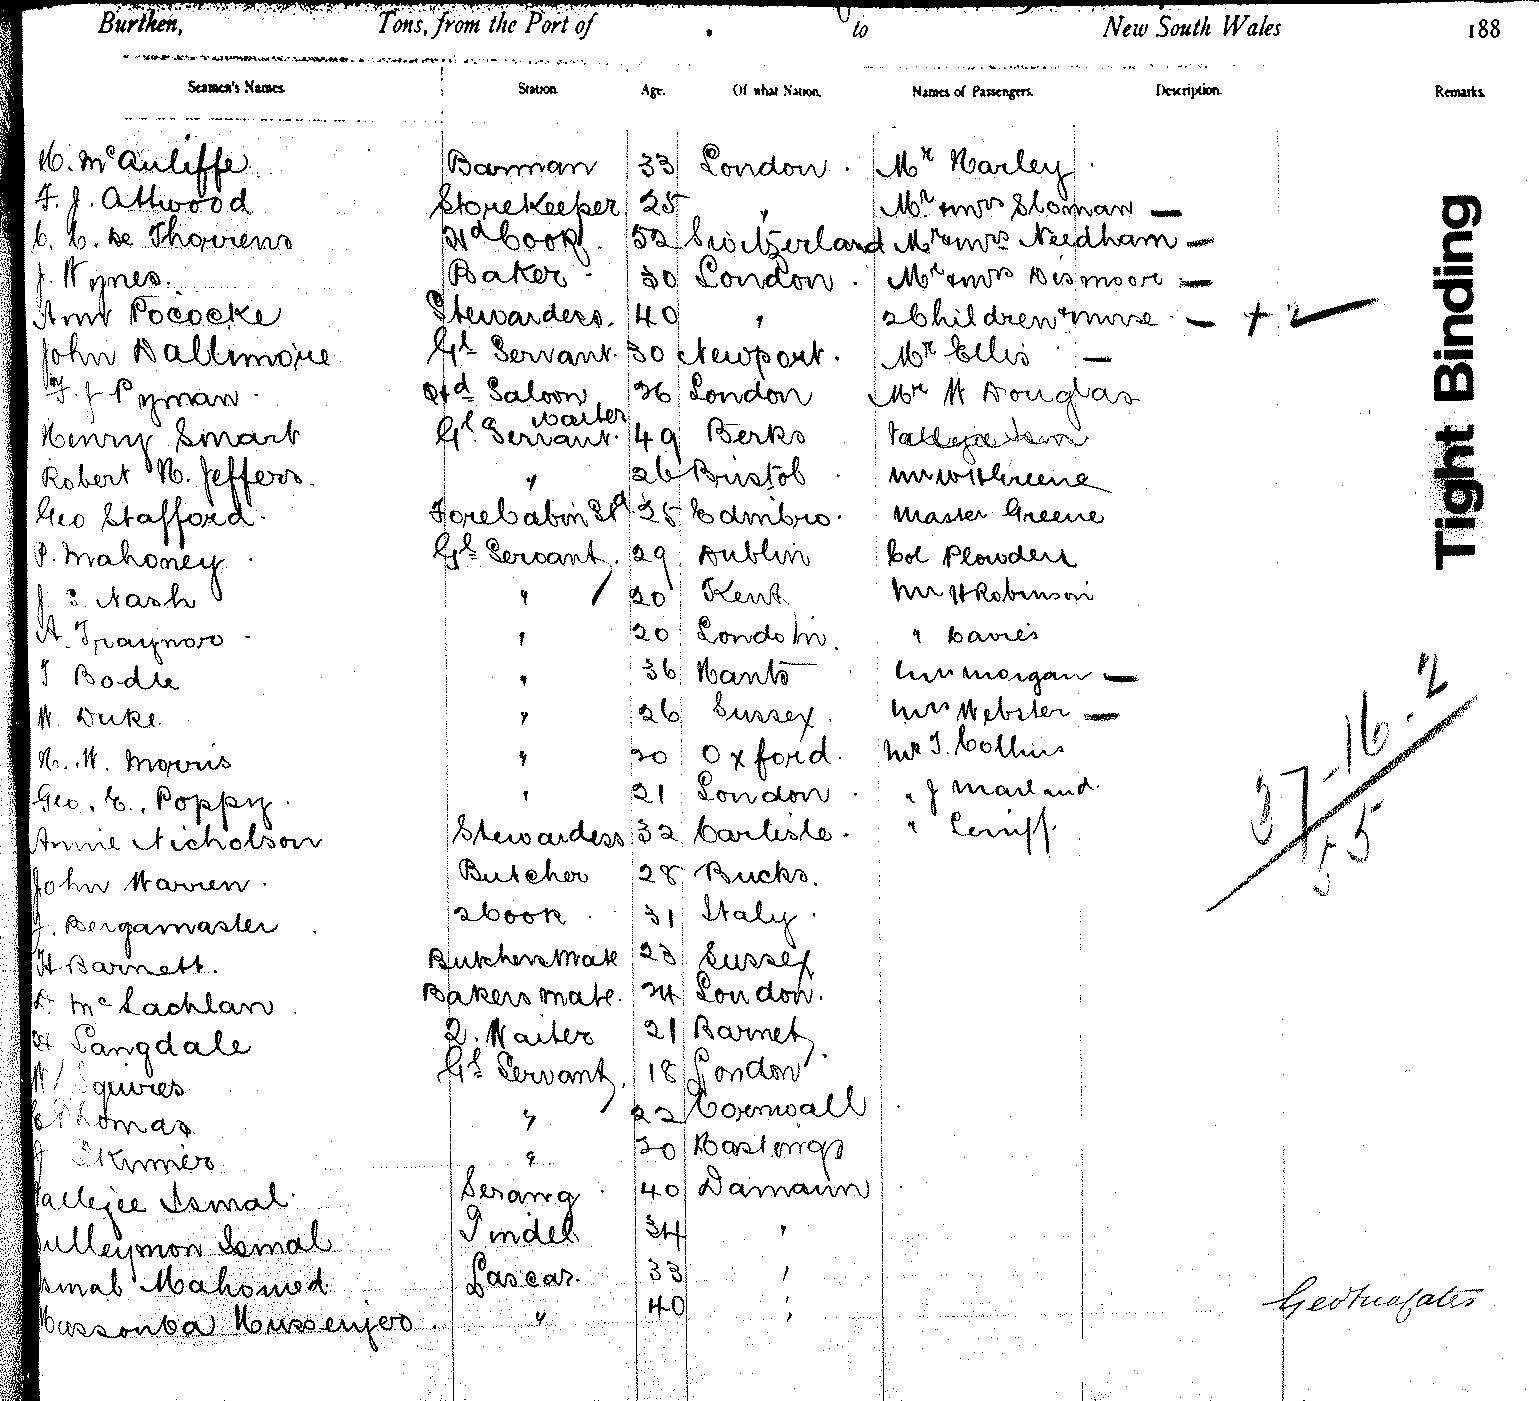 Burthen, Tons, from the Port of . to New South Wales 188
Seamen's Names. Station. Age. Of what Nation. Names of Passengers. Description. Remarks.
H. McAuliffe Barman 33 London. Mr Harley
F. J. Attwood Storekeeper 25 " Mr & Mrs Sloman —
C. C. de Thovrens Cook. 52 Switzerland Mr & Mrs Needham —
J. Wynes. Baker 30 London. Mr & Mrs Dismoore —
Ann Pococke Stewardess. 40 " 2 Children & nurse — + 2
John Dallimore Gl Servant. 30 Newport. Mr Ellis —
F. J Pyman Saloon waiter 26 London Mr W Douglas
Henry Smart Gl Servant. 49 Berks
Robert H. Jeffers. " 26 Bristol Mr W H Greene
Geo Stafford. Forecabin Std 25 Edinbro. Master Greene
P. Mahoney Gl Servant. 29 Dublin Col Plowden
J S Nash " 20 Kent Mr H Robinson
A. Traynor " 20 London. " Davies
T Bodle " 36 Hants Morgan —
W. Duke. " 26 Sussex. Mrs Webster —
H. W. Morris " 20 Oxford. Mr T. Collins
Geo. E. Poppy. " 21 London " J Marland.
Annie Nicholson Stewardess 32 Carlisle. "
John Warren. Butcher 28 Bucks.
J. Bergamaster 2 Cook 31 Italy.
H Barnett. Butchers Mate 23 Sussex
D. McLachlan Bakers mate. 24 London.
H Langdale 2. Waiter 21 Barnet
W Squires Gl Servant, 18 London
C Thomas " 22 Cornwall
J Skinner " 20 Hastings
Vallejee Ismal. Serang 40 Damaun
Sulleymon Ismal Tindel 34 "
Ismal Mahomed Lascar. 33 "
Hussenjee. " 40 "
Tight Binding
37-16.2
55